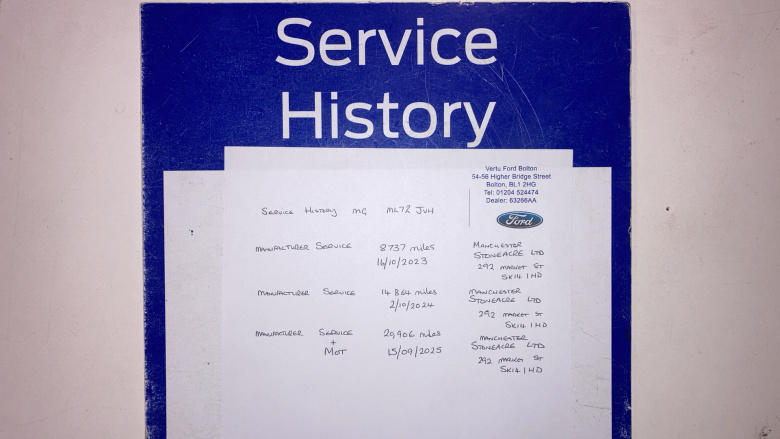 Service
History
Vertu Ford Bolton
54-56 Higher Bridge Street
Bolton, BL1 2HG
Tel: 01204 524474
Dealer: 63266AA
Ford
SERVICE HISTORY MG ML72 JVH
MANUFACTURER SERVICE 8737 miles MANCHESTER
STONEACRE LTD
16/10/2023 292 MARKET ST
SK14 1HD
MANUFACTURER SERVICE 14 864 miles MANCHESTER
STONEACRE LTD
2/10/2024 292 MARKET ST
SK14 1HD
MANUFACTURER SERVICE 20,906 miles MANCHESTER
+ STONEACRE LTD
MOT 15/09/2025 292 MARKET ST
SK14 1HD